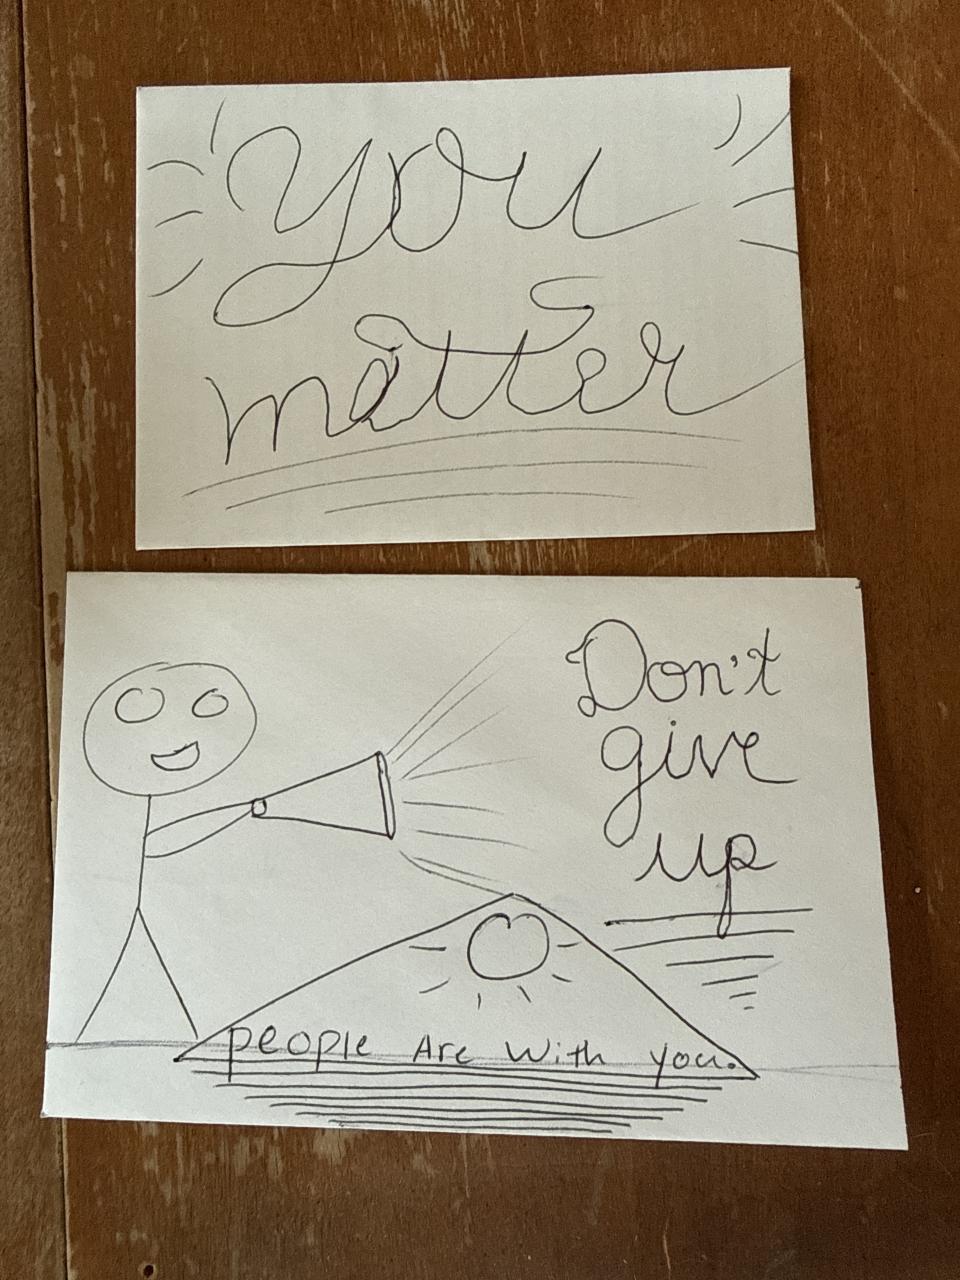 you
matter
Don't
give
up
people Are with you.